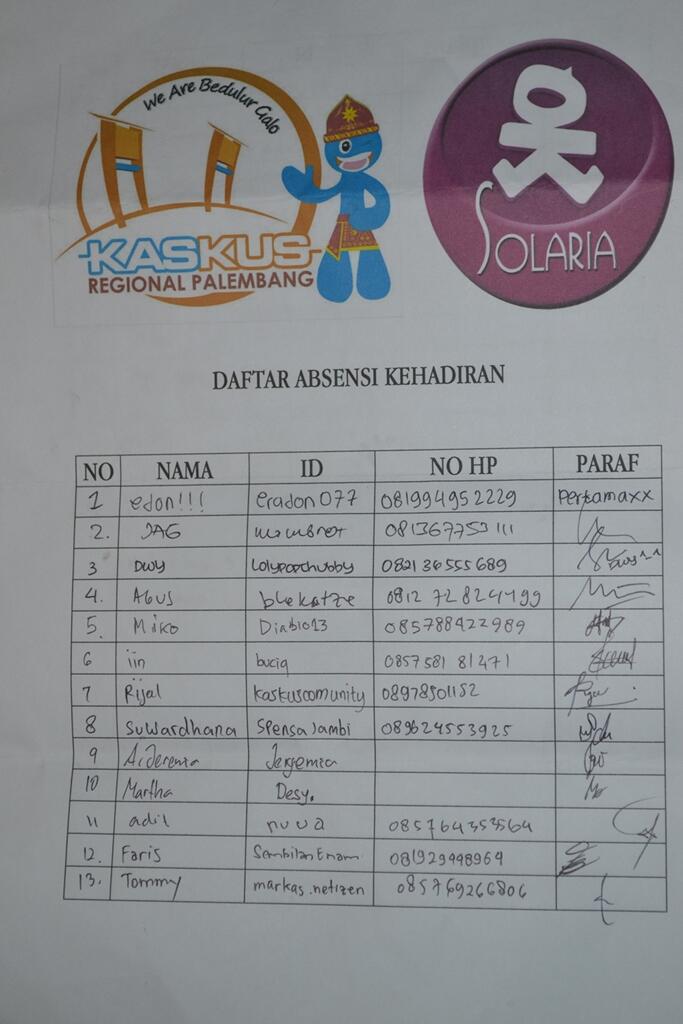 We Are Bedulur Galo
KASKUS
REGIONAL PALEMBANG
OK
SOLARIA
DAFTAR ABSENSI KEHADIRAN
NO NAMA ID NO HP PARAF
1 edon!!! eradon077 081994952229 Pertamaxx
2. JAG 081367753111
3 Dwy Lolypopchubby 082136555689
4. Agus blekatze 0812 72 824499
5. Miko Diablo13 085788422989
6 iin buciq 0857581 81471
7 Rijal kaskuscomunity 08978501152
8 Suwardhana Spensa Jambi 089624553925
9
10 Martha Desy.
11 adil nuva 085764353564
12. Faris Sembilan Enam 081929448964
13. Tommy markas.netizen 085769266806